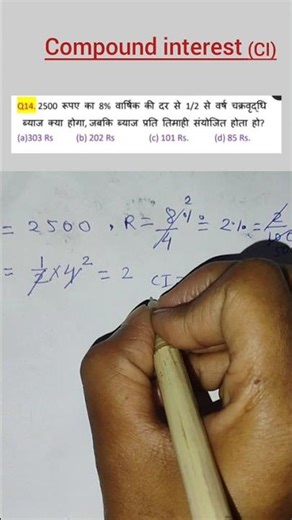 Compound interest (CI)
Q14. 2500 रूपए का 8% वार्षिक की दर से 1/2 से वर्ष चक्रवृद्धि
ब्याज क्या होगा, जबकि ब्याज प्रति तिमाही संयोजित होता हो?
(a)303 Rs (b) 202 Rs (c) 101 Rs. (d) 85 Rs.
= 2500, R = 8%/4 2 = 2% = 2/100
= 1/2 × 4 2 = 2 CI =